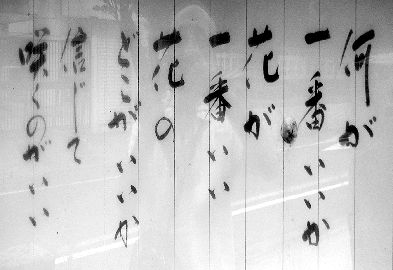 何が
一番いいか
花が
一番いい
花の
どこがいいか
信じて
咲くのがいい